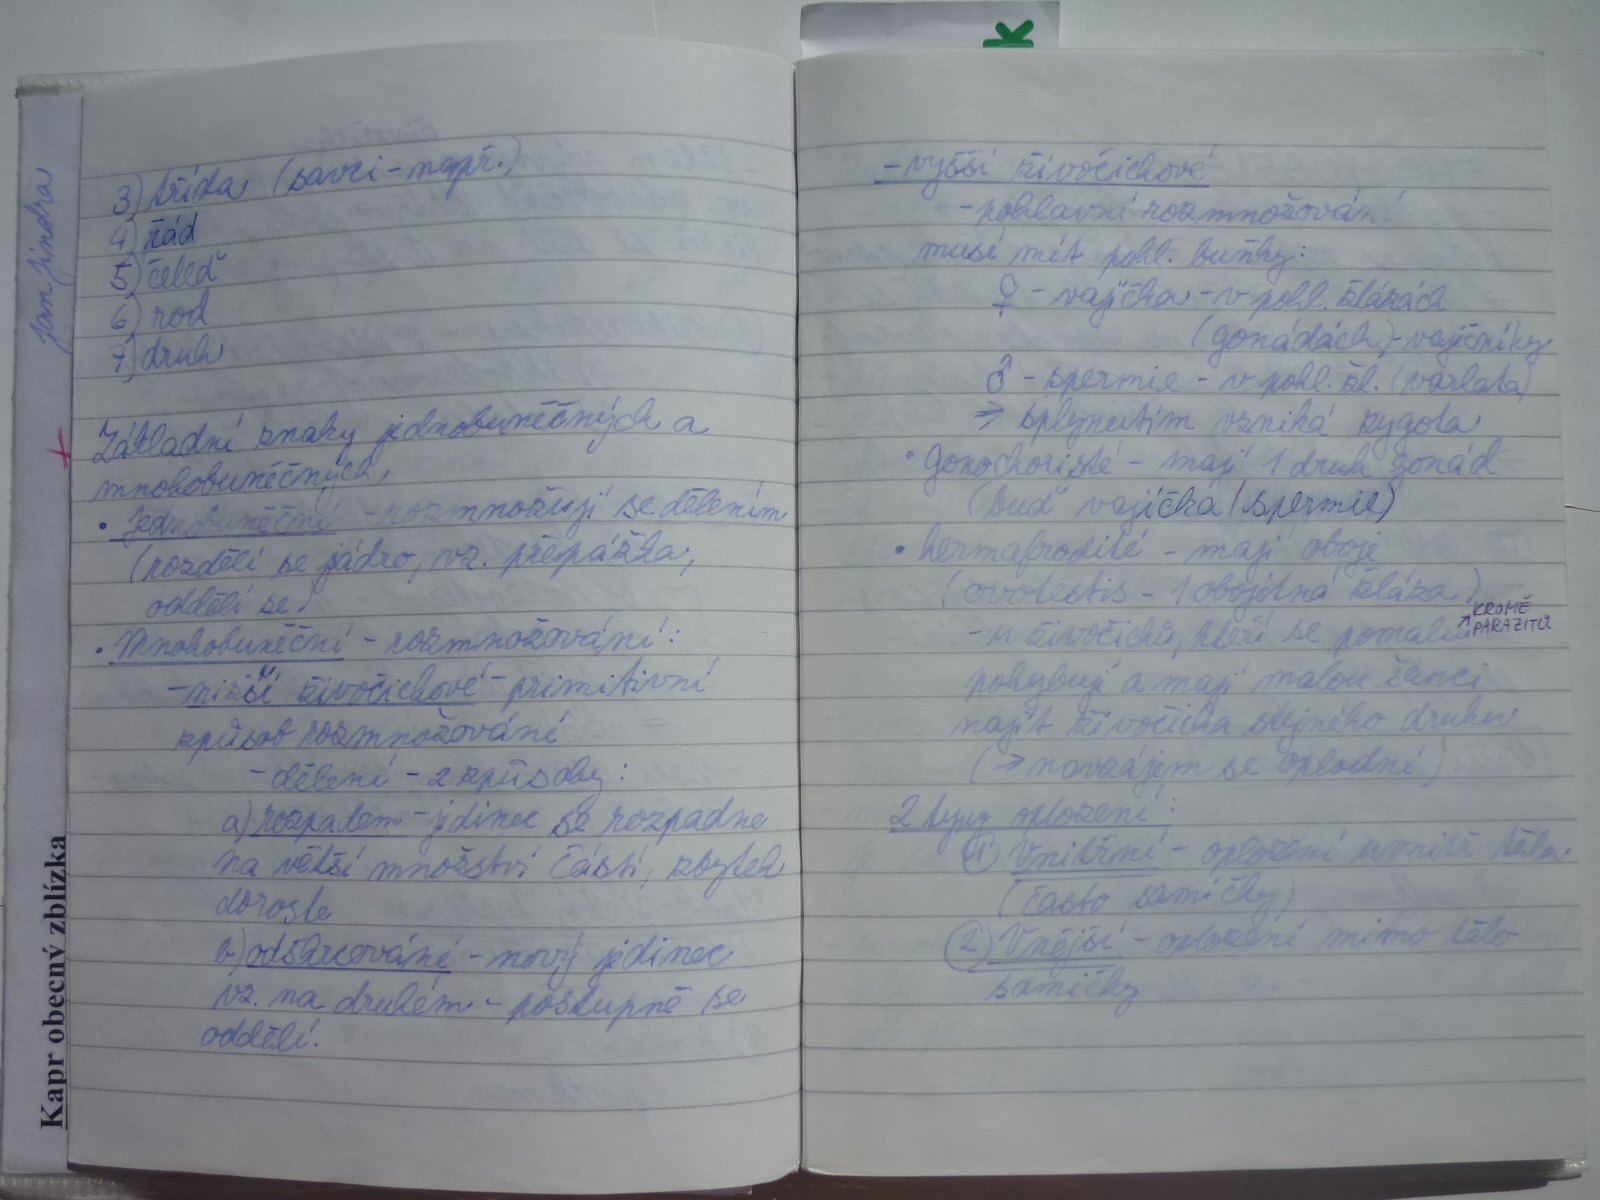 3) třída (savci - např.)
4) řád
5) čeleď
6) rod
7) druh
Základní znaky jednobuněčných a
mnohobuněčných
• Jednobuněční - rozmnožují se dělením
(rozdělí se jádro, vz. přepážka,
oddělí se)
• Mnohobuněční - rozmnožování:
- nižší živočichové - primitivní
způsob rozmnožování
- dělení - 2 způsoby:
a) rozpadem - jedinec se rozpadne
na větší množství částí, zbytek
doroste
b) odškrcování - nový jedinec
vz. na druhém - postupně se
oddělí.
Jan Jindra
Kapr obecný zblízka
K
- vyšší živočichové
- pohlavní rozmnožování
musí mít pohl. buňky:
♀ - vajíčka - v pohl. žlázách
(gonádách) - vaječníky
♂ - spermie - v pohl. žl. (varlata)
⇒ splynutím vzniká zygota
• gonochoristé - mají 1 druh gonád
(buď vajíčka / spermie)
• hermafrodité - mají oboje
(ovotestis - 1 obojetná žláza)
- u živočichů, kteří se pomalu ↗ KROMĚ PARAZITŮ
pohybují a mají malou šanci
najít živočicha stejného druhu
(→ navzájem se oplodní)
2 typy oplození:
1) Vnitřní - oplození uvnitř těla
(často samičky)
2) Vnější - oplození mimo tělo
samičky